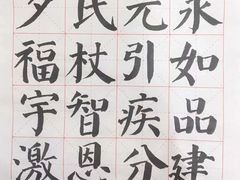 夕民元永
福杖引如
宇智疾品
激恩分建